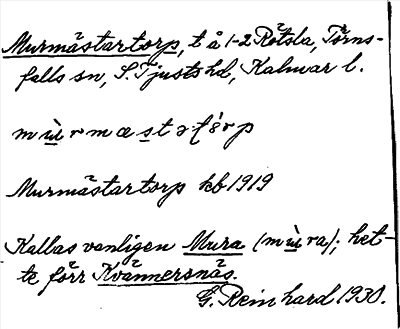 Murmästartorp, t å 1-2 Rötsla, Törns-
falls sn, S. Tjusts hd, Kalmar l.
mu̇̀rmæstətårp
Murmästartorp kb 1919
Kallas vanligen Mura (mùra); het-
te förr Kvännersnäs.
G. Reinhard 1930.